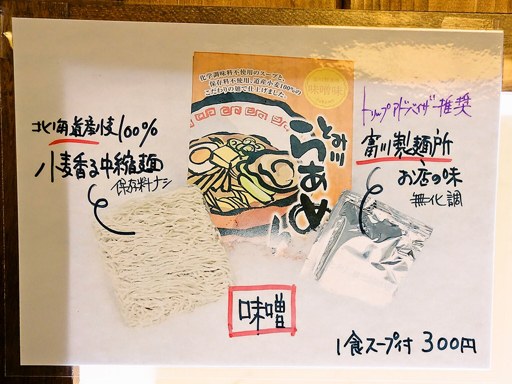 化学調味料不使用のスープと、
保存料不使用、道産小麦100%の
こだわりの麺で仕上げました。
味噌味
とみ川
らぁめん
トリップアドバイザー推奨
北海道産小麦100%
小麦香る中縮麺
保存料ナシ
富川製麺所
お店の味
無化調
味噌
1食スープ付 300円